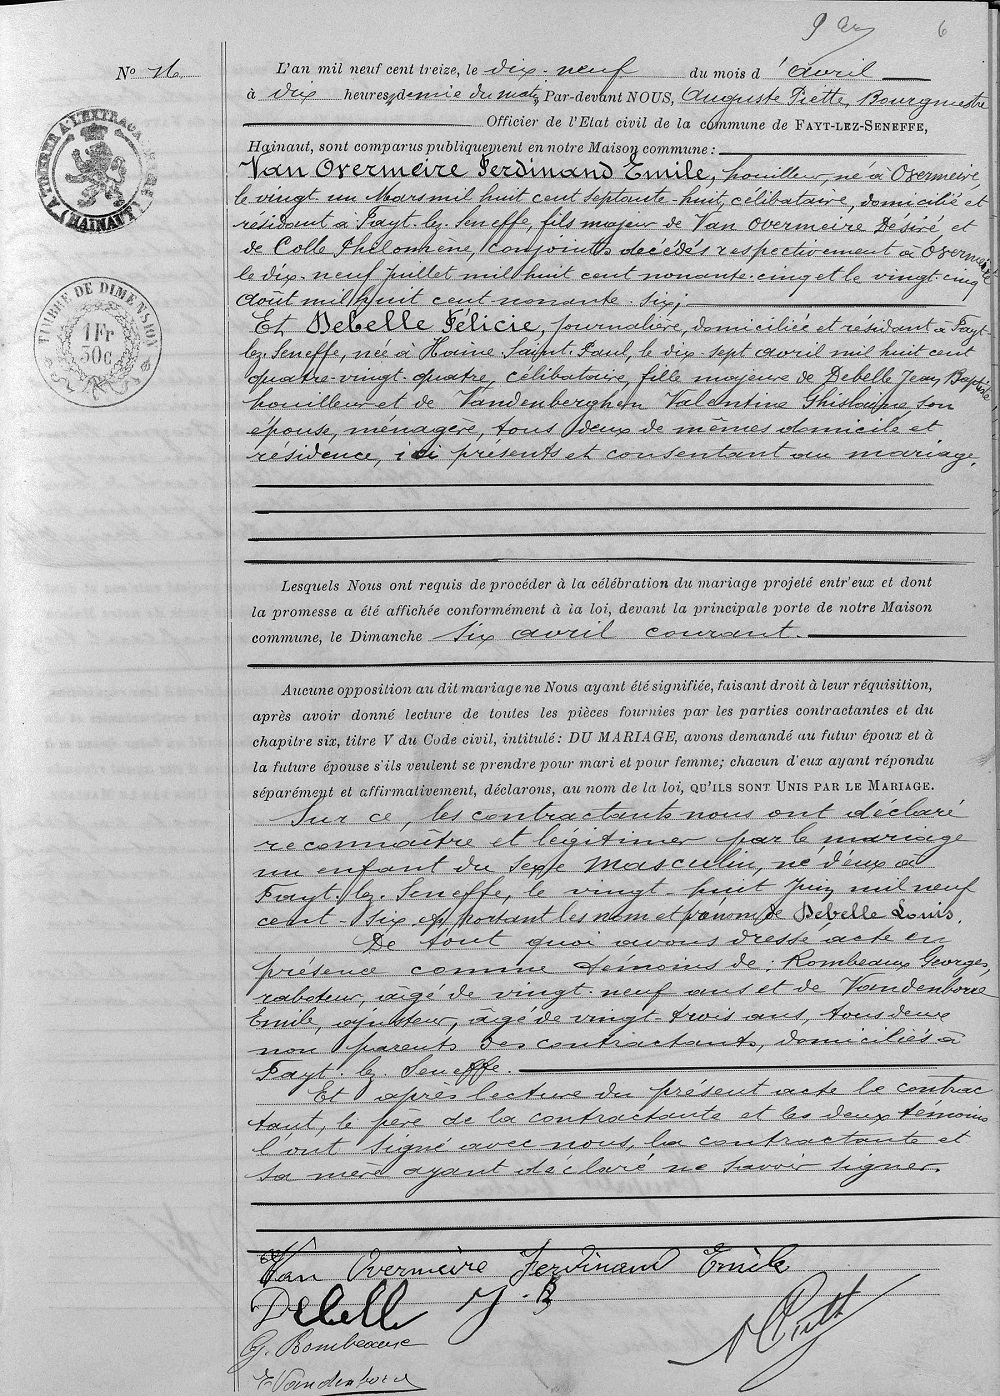 6
No 16
L'an mil neuf cent treize, le dix-neuf du mois d'avril
à dix heures, demie du matin Par-devant NOUS, Auguste Piette, Bourgmestre
Officier de l'Etat civil de la commune de FAYT-LEZ-SENEFFE,
Hainaut, sont comparus publiquement en notre Maison commune :
Van Overmeire Ferdinand Emile, houilleur, né à Overmeire
le vingt un Mars mil huit cent septante-huit, célibataire, domicilié et
résidant à Fayt-lez-Seneffe, fils majeur de Van Overmeire Désiré, et
de Colle Philomène, conjoints décédés respectivement à Overmeire
le dix-neuf Juillet mil huit cent nonante-cinq et le vingt-cinq
Août mil huit cent nonante-six;
Et Debelle Félicie, journalière, domiciliée et résidant à Fayt-
lez-Seneffe, née à Haine-Saint-Paul, le dix-sept avril mil huit cent
quatre-vingt-quatre, célibataire, fille majeure de Debelle Jean Baptiste
houilleur et de Vandenberghen Valentine Ghislaine son
épouse, ménagère, tous deux de mêmes domicile et
résidence, ici présents et consentant au mariage.
Lesquels Nous ont requis de procéder à la célébration du mariage projeté entr'eux et dont
la promesse a été affichée conformément à la loi, devant la principale porte de notre Maison
commune, le Dimanche six avril courant.
Aucune opposition au dit mariage ne Nous ayant été signifiée, faisant droit à leur réquisition,
après avoir donné lecture de toutes les pièces fournies par les parties contractantes et du
chapitre six, titre V du Code civil, intitulé : DU MARIAGE, avons demandé au futur époux et à
la future épouse s'ils veulent se prendre pour mari et pour femme; chacun d'eux ayant répondu
séparément et affirmativement, déclarons, au nom de la loi, QU'ILS SONT UNIS PAR LE MARIAGE.
Sur ce, les contractants nous ont déclaré
reconnaître et légitimer par le mariage
un enfant du sexe masculin, né d'eux à
Fayt-lez-Seneffe, le vingt-huit Juin mil neuf
cent-six et portant les nom et prénom de Debelle Louis.
De tout quoi avons dressé acte en
présence comme témoins de : Rombeaux Georges,
raboteur, âgé de vingt-neuf ans et de Vandenborre
Emile, ajusteur, âgé de vingt-trois ans, tous deux
non parents des contractants, domiciliés à
Fayt-lez-Seneffe.
Et après lecture du présent acte le contrac
tant, le père de la contractante et les deux témoins
l'ont signé avec nous, la contractante et
sa mère ayant déclaré ne savoir signer.
Van Overmeire Ferdinand Emile
Debelle J. B
G. Rombeaux
E Vandenborre
A Piette
TIMBRE DE DIMENSION
1 Fr
30c
(HAINAUT)